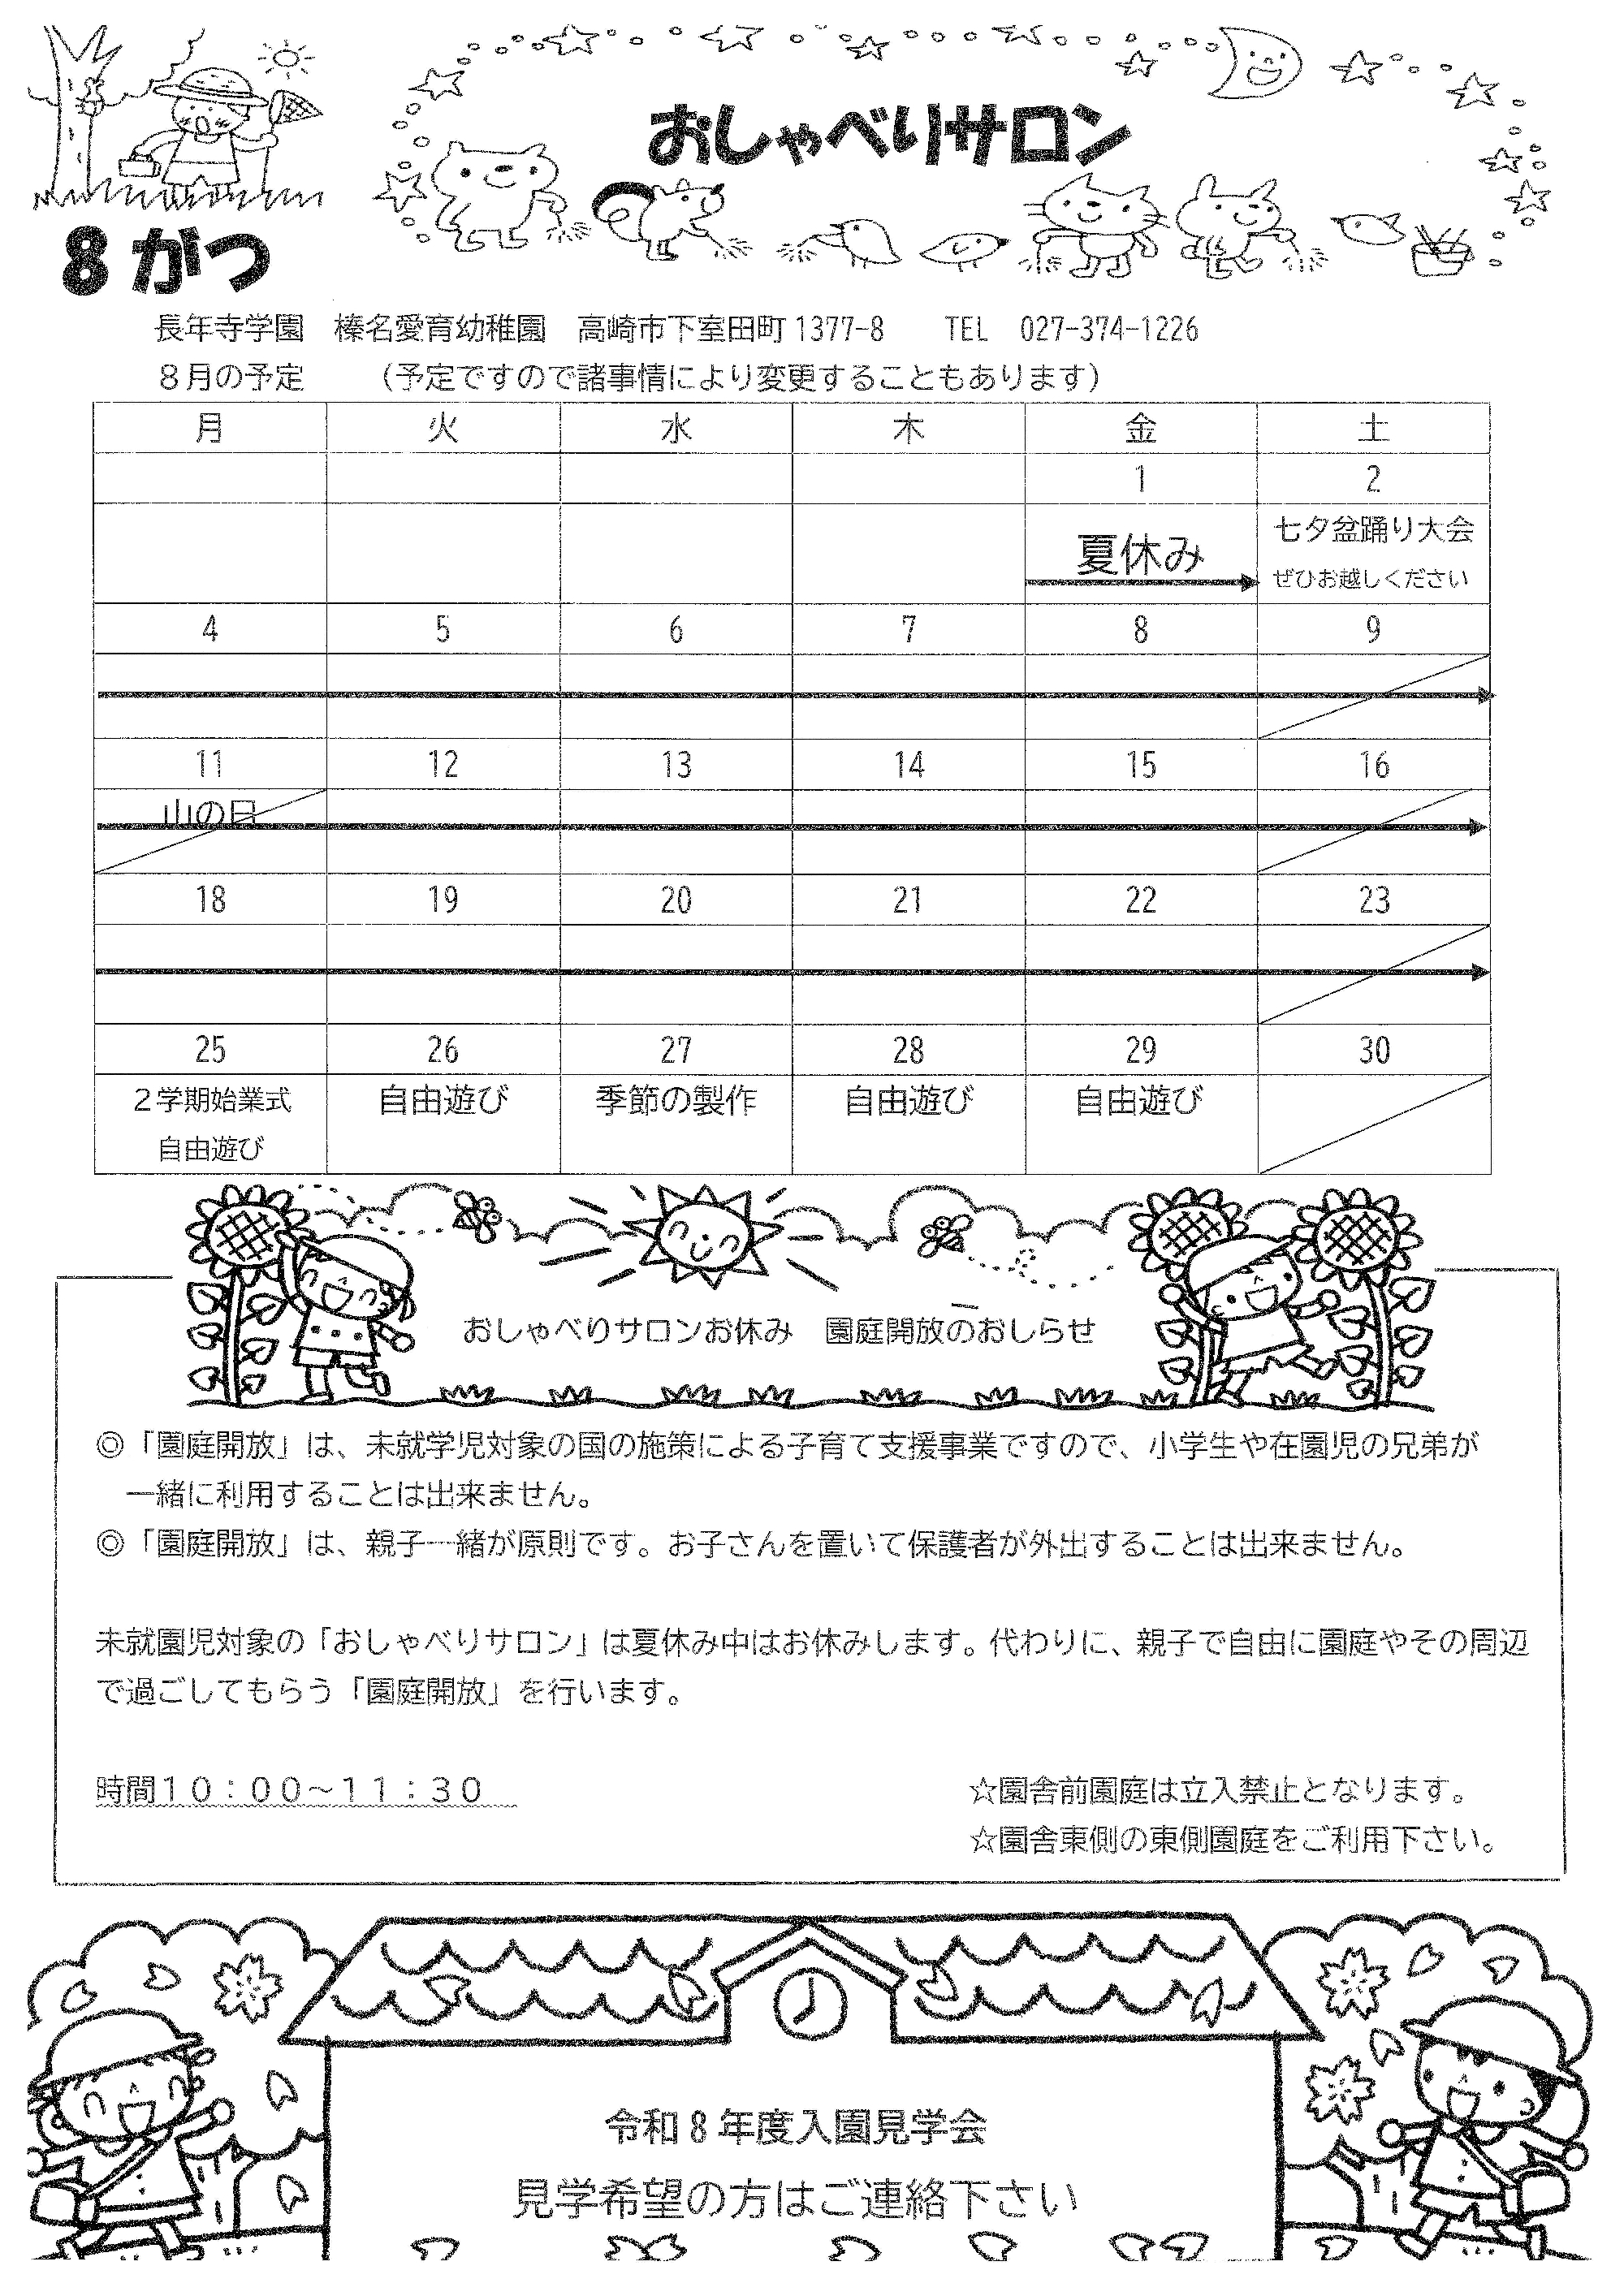 おしゃべりサロン
8がつ
長年寺学園　榛名愛育幼稚園　高崎市下室田町 1377-8　　TEL　027-374-1226
８月の予定　　（予定ですので諸事情により変更することもあります）
月　火　水　木　金　土
1　2
夏休み　七夕盆踊り大会
ぜひお越しください
4　5　6　7　8　9
11　12　13　14　15　16
山の日
18　19　20　21　22　23
25　26　27　28　29　30
２学期始業式　自由遊び　季節の製作　自由遊び　自由遊び
自由遊び
おしゃべりサロンお休み　園庭開放のおしらせ
◎「園庭開放」は、未就学児対象の国の施策による子育て支援事業ですので、小学生や在園児の兄弟が
一緒に利用することは出来ません。
◎「園庭開放」は、親子一緒が原則です。お子さんを置いて保護者が外出することは出来ません。
未就園児対象の「おしゃべりサロン」は夏休み中はお休みします。代わりに、親子で自由に園庭やその周辺
で過ごしてもらう「園庭開放」を行います。
時間１０：００～１１：３０　　☆園舎前園庭は立入禁止となります。
☆園舎東側の東側園庭をご利用下さい。
令和 8 年度入園見学会
見学希望の方はご連絡下さい